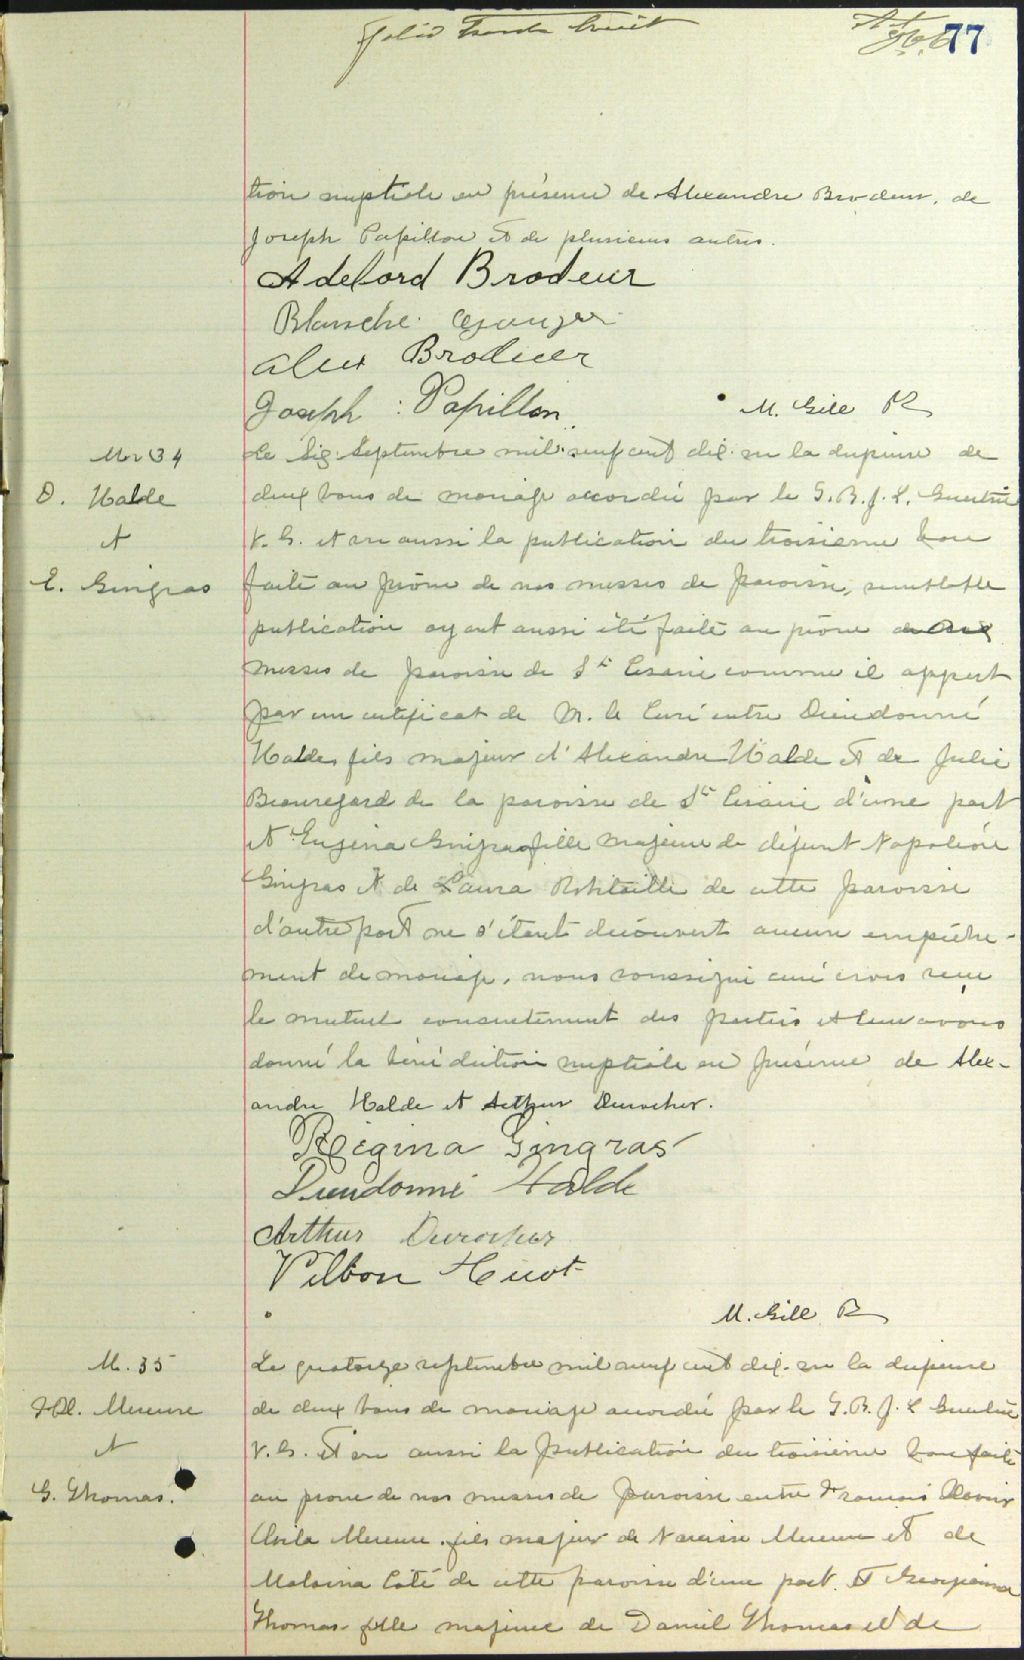 folio trente huit
77
tion nuptiale en présence de Alexandre Brodeur, de
Joseph Papillon et de plusieurs autres.
Adelord Brodeur
Blanche
Alex Brodeur
Joseph : Papillon
M. Gill
M. 34
D. Halde
et
E. Gingras
Le six Septembre mil neuf cent dix vu la dispense de
deux bans de mariage accordée par le G. R. J. L. Guertin
V. G. et vu aussi la publication du troisième ban
faite au prône de nos messes de paroisse, semblable
publication ayant aussi été faite au prône
messes de paroisse de St Césaire comme il appert
par un certificat de M. le Curé entre Dieudonné
Halde, fils majeur d'Alexandre Halde et de Julie
Beauregard de la paroisse de St Césaire d'une part
et Gingras fille majeure de défunt Napoléon
Gingras et de Laura Robitaille de cette paroisse
d'autre part ne s'étant découvert aucun empêche-
ment de mariage, nous soussigné curé avons reçu
le mutuel consentement des parties et leur avons
donné la bénédiction nuptiale en présence de Alex-
andre Halde et Arthur Durocher.
Régina Gingras
Dieudonné Halde
Arthur Durocher
Vilbon Huot
M. Gill
M. 35
Mercure
et
G. Thomas.
Le quatorze septembre mil neuf cent dix vu la dispense
de deux bans de mariage accordée par le G. R. J. L Guertin
V. G. et vu aussi la publication du troisième ban faite
au prone de nos messes de paroisse entre François
Avila Mercure fils majeur de Narcisse Mercure et de
Malvina Coté de cette paroisse d'une part et Georgianna
Thomas fille majeure de Daniel Thomas et de